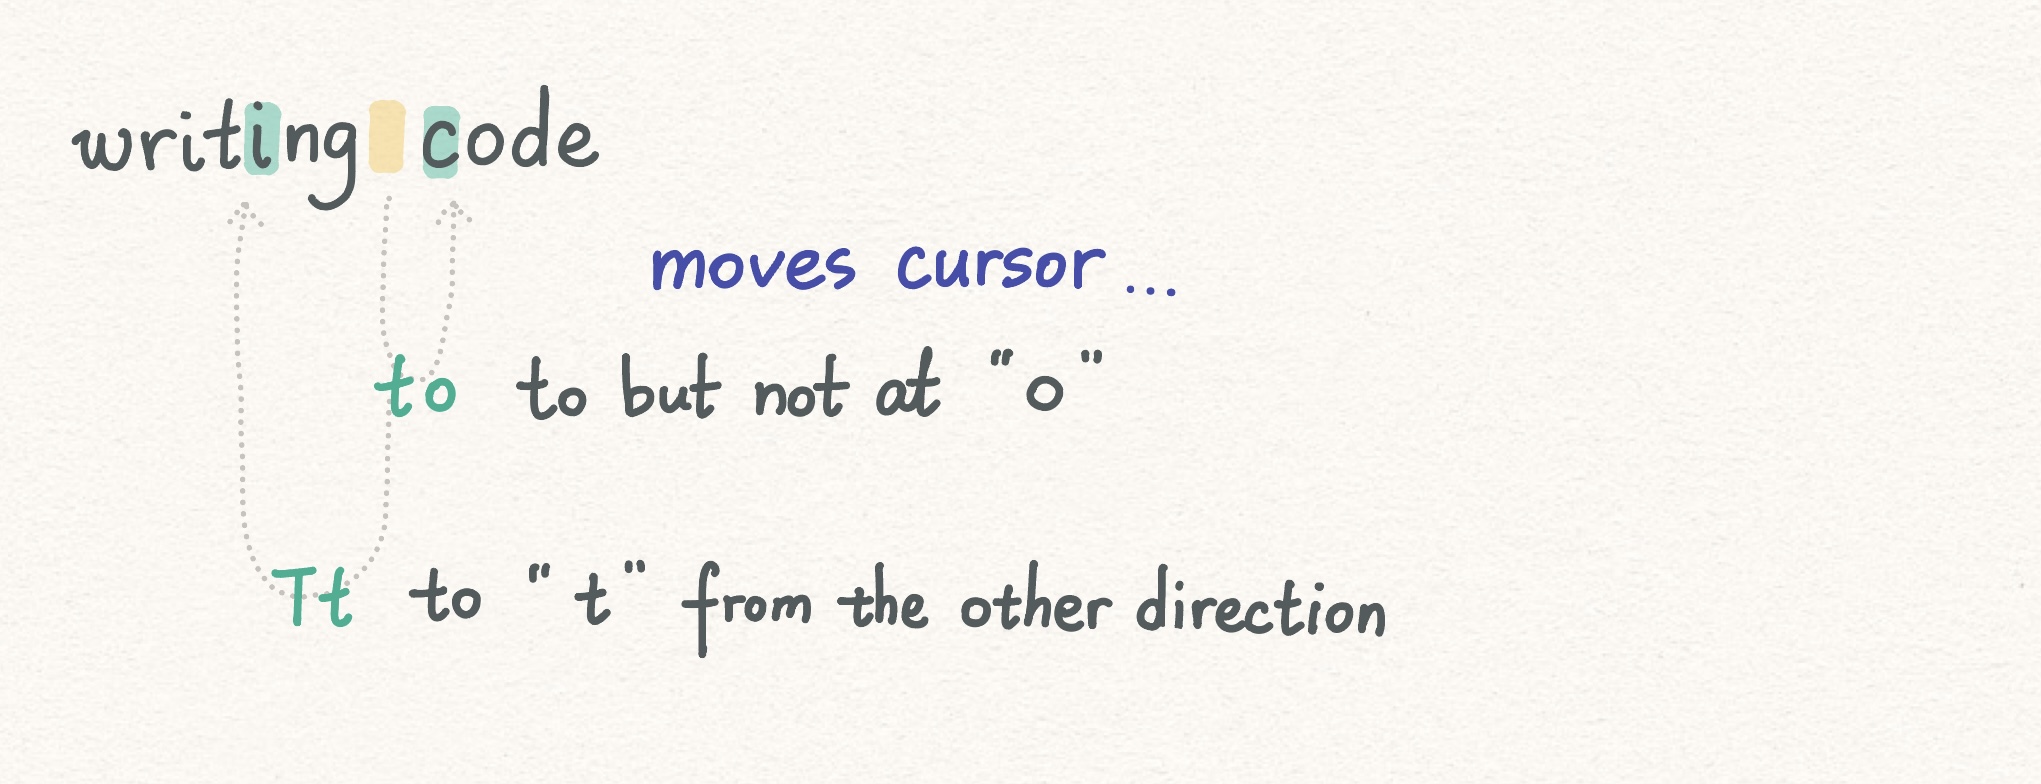 writing code
moves cursor...
to to but not at "o"
Tt to "t" from the other direction